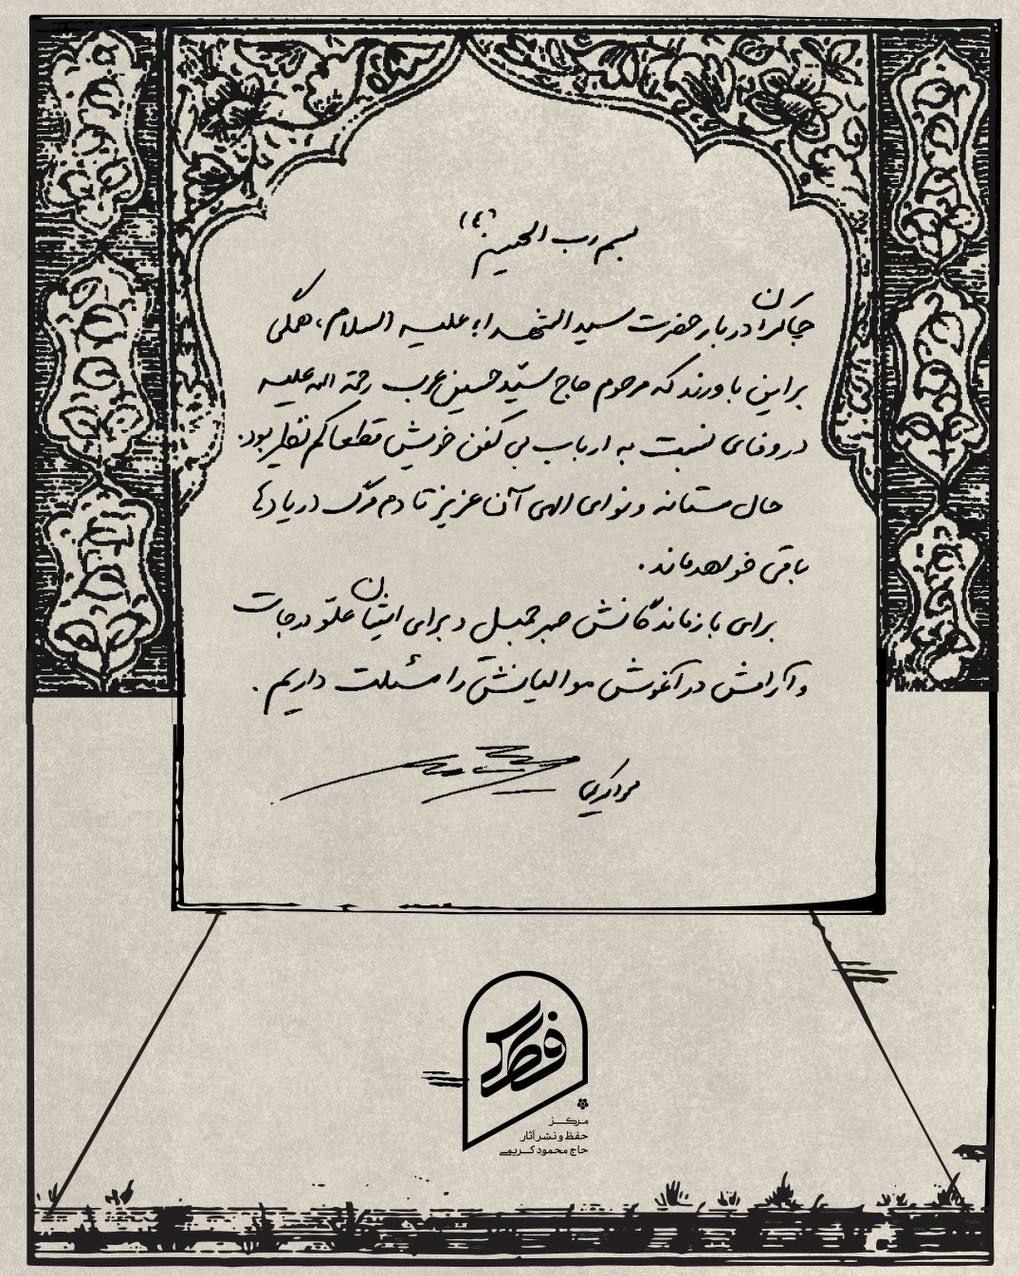 بسم رب الحسین (ع)
چاکران دربار حضرت سید الشهداء علیه السلام، همگی
بر این باورند که مرحوم حاج سیّد حسین عرب رحمة الله علیه
در وفای نسبت به ارباب بی کفن خویش قطعا کم نظیر بود.
حال مستانه و نوای الهی آن عزیز تا دم مرگ در یادها
باقی خواهد ماند.
برای بازماندگانش صبر جمیل و برای ایشان علوّ درجات
و آرامش در آغوش موالیانش را مسئلت داریم.
فطرس
مرکز
حفظ و نشر آثار
حاج محمود کریمی